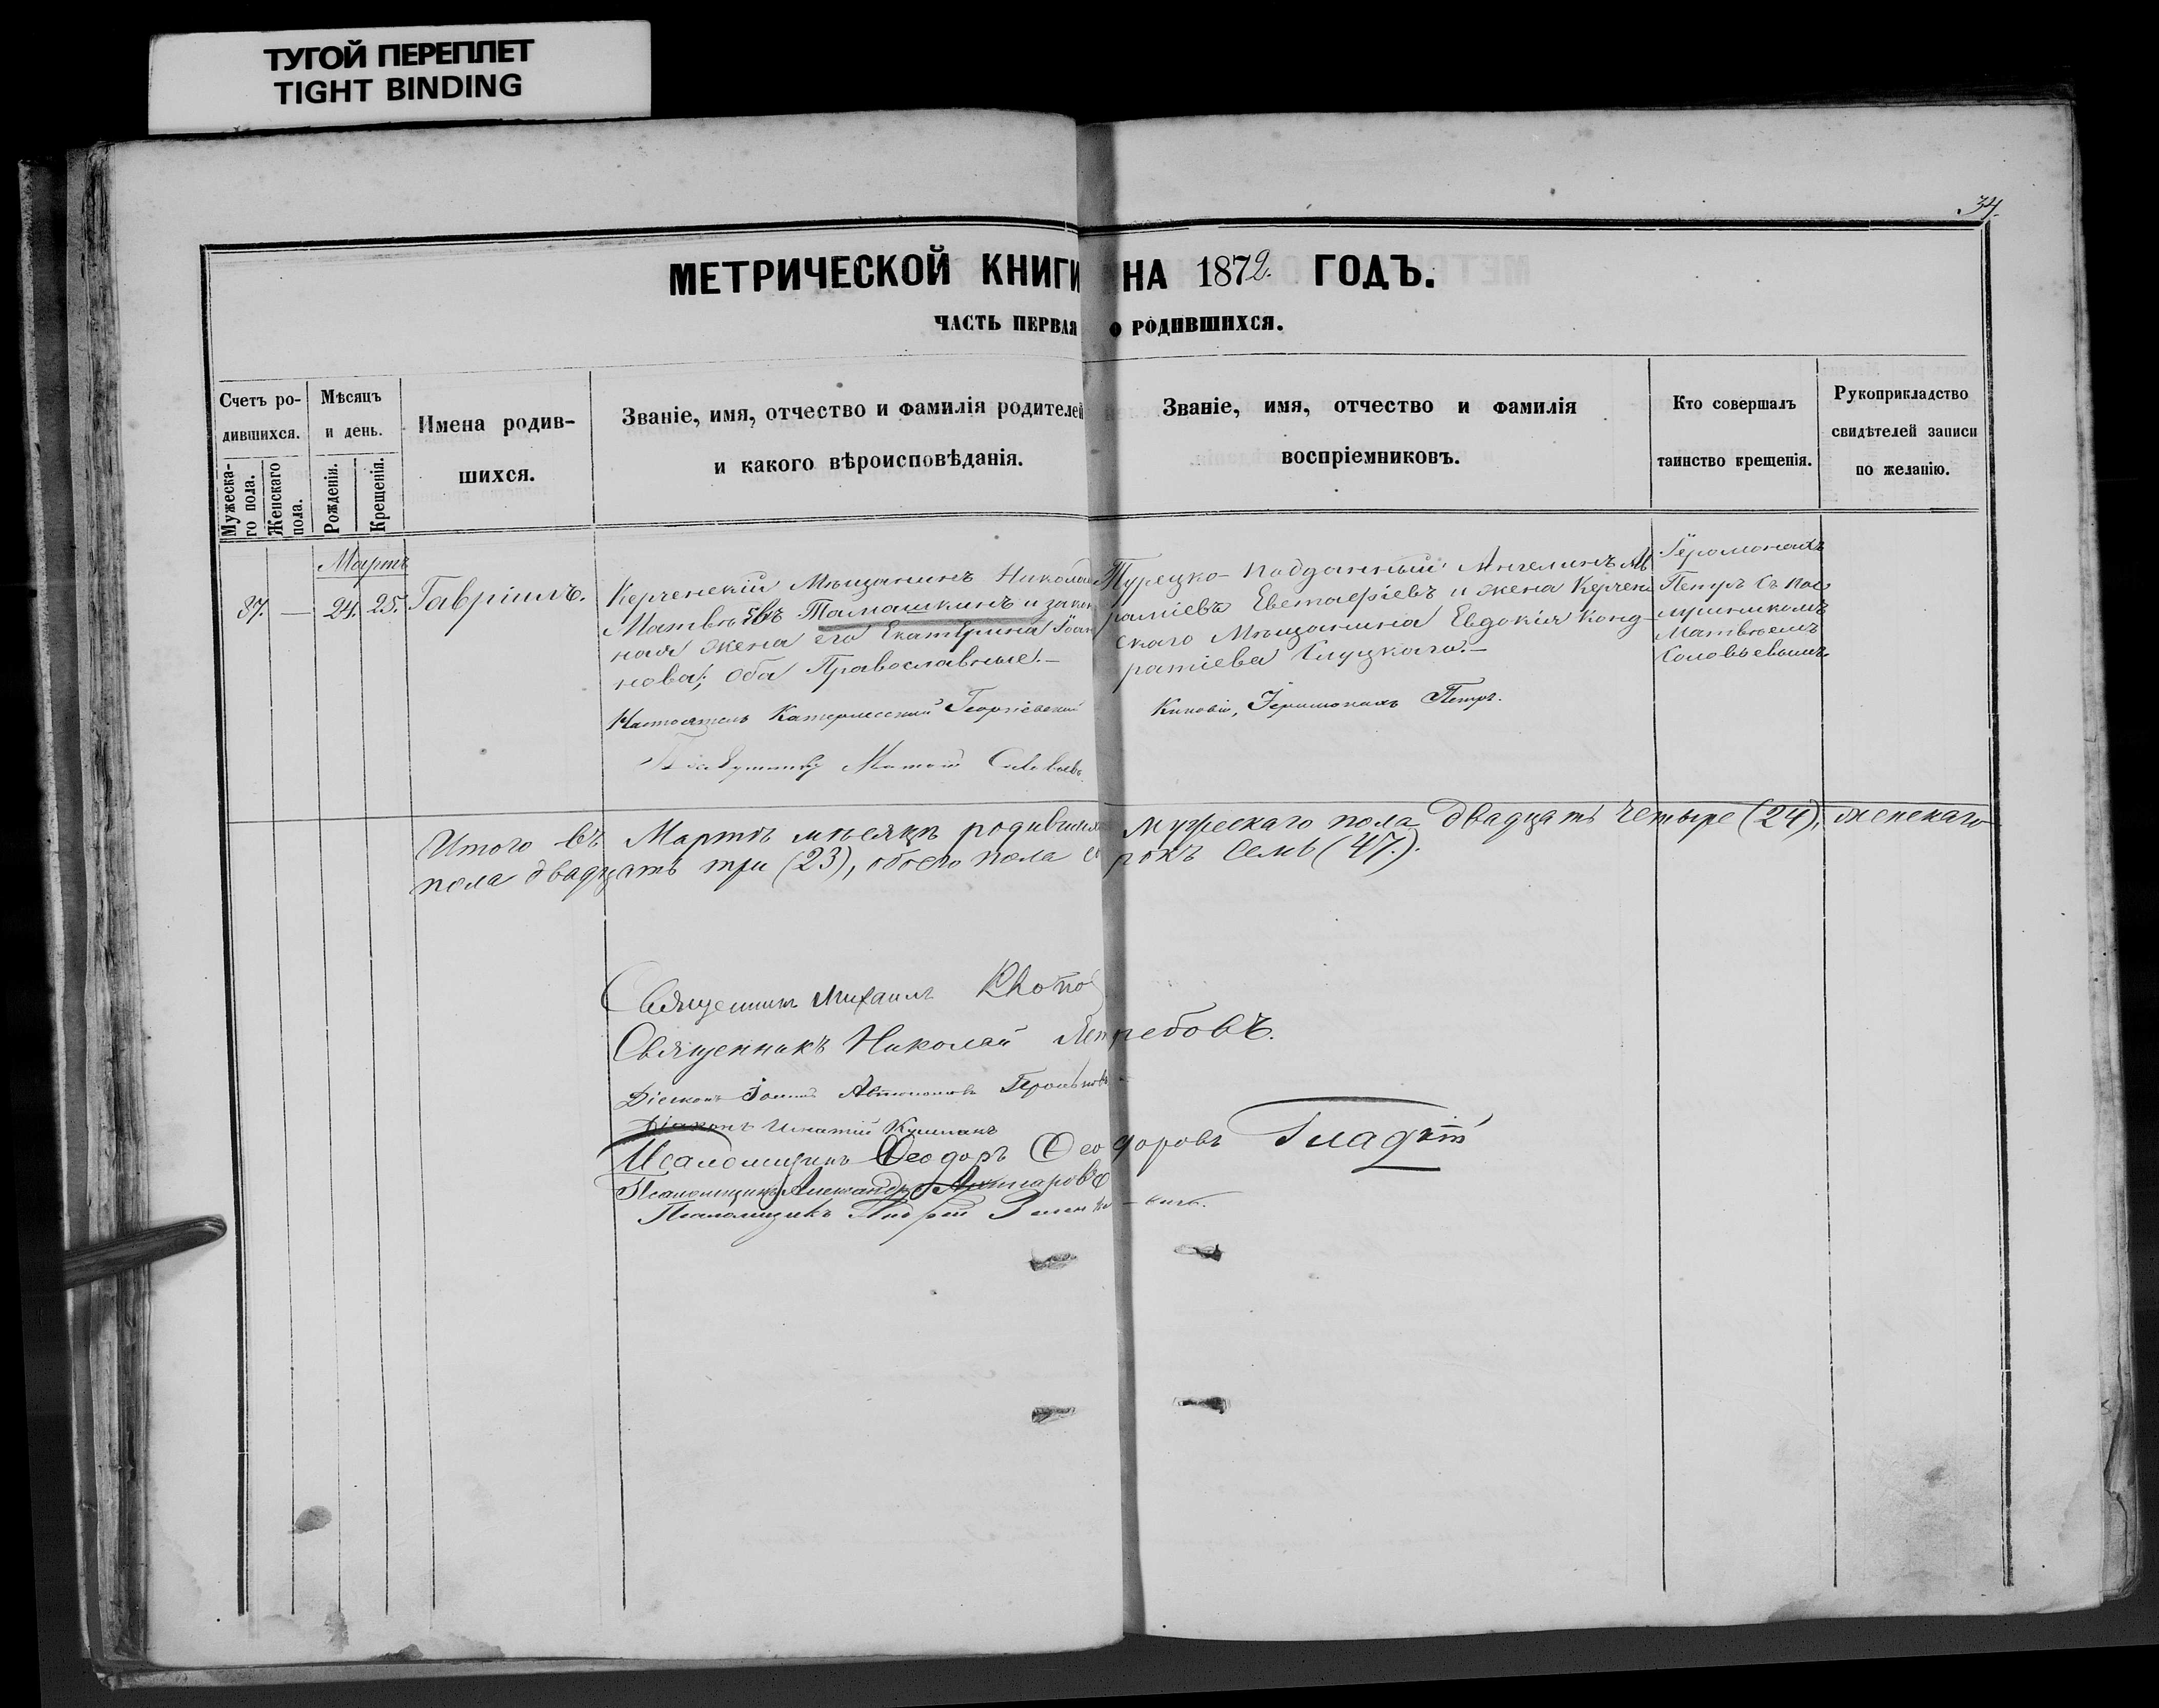 ТУГОЙ ПЕРЕПЛЕТ
TIGHT BINDING
34.
МЕТРИЧЕСКОЙ КНИГИ НА 1872. ГОДЪ.
ЧАСТЬ ПЕРВАЯ О РОДИВШИХСЯ.
Счетъ ро-
дившихся.
Мужеска-
го пола.
Женскаго
пола.
Мѣсяцъ
и день.
Рожденія.
Крещенія.
Имена родив-
шихся.
Званіе, имя, отчество и фамилія родителей
и какого вѣроисповѣданія.
Званіе, имя, отчество и фамилія
воспріемниковъ.
Кто совершалъ
таинство крещенія.
Рукоприкладство
свидѣтелей записи
по желанію.
Мартъ
87. — 24. 25. Гавріилъ.
Керченскій Мѣщанинъ Николай
Матвѣевъ Тамашкинъ и закон
ная жена его Екатерина Іоан
нова; оба Православные.—
Турецко-подданный Ангелинъ
Евстафіевъ и жена Керчен
скаго Мѣщанина Евдокія Конд-
ратіева Слуцкаго.—
Іеромонахъ
Петръ съ пос-
лушникомъ
Матвѣемъ
Соловьевымъ.
Настоятель Катерлесской Георгіевской Киновіи, Іеромонахъ Петръ.
Послушникъ Матвѣй Соловьевъ
Итого въ Мартѣ мѣсяцѣ родившихся мужескаго пола двадцать четыре (24), женскаго
пола двадцать три (23), обоего пола сорокъ семь (47.).
Священникъ Михаилъ
Священникъ Николай Ястребовъ.
Діаконъ Іоаннъ Автономовъ
Діаконъ Игнатій
Псаломщикъ Ѳеодоръ Ѳеодоровъ Гладкій
Псаломщикъ Александръ
Псаломщикъ Андрей